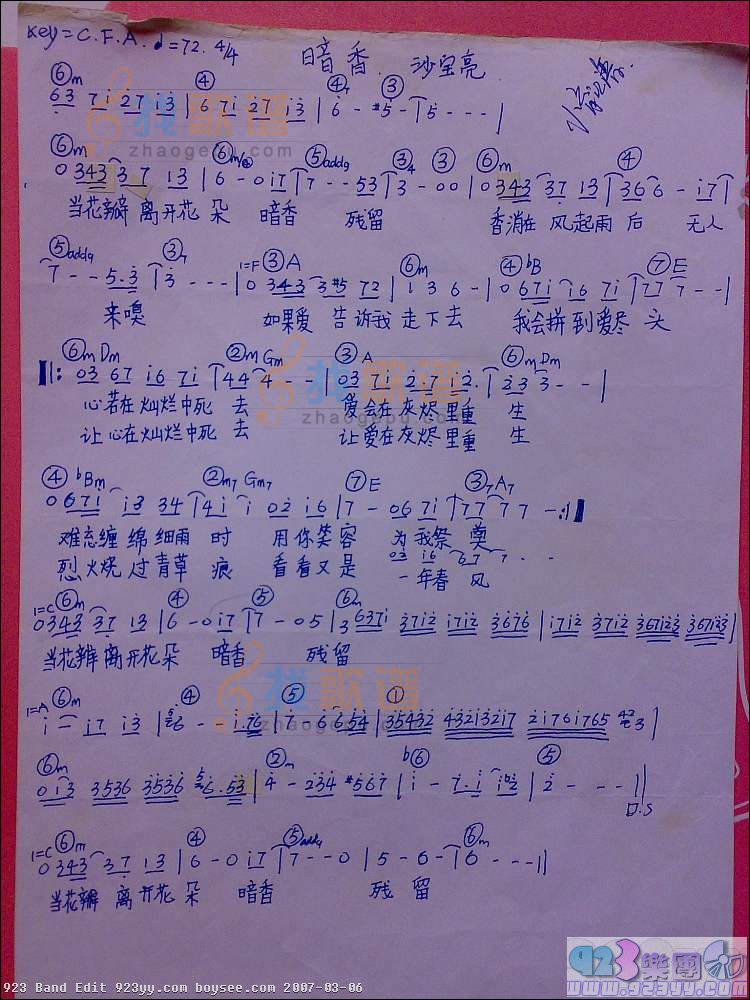 Key = C.F.A. ♩=72. 4/4
暗香 沙宝亮
⑥m ④ ④ ③
63 7i 27 i3 | 6 7i 27 i3 | 6 - #5 - | 5 - - - |
⑥m ⑥m ⑤add9 ③4 ③ ⑥m ④
0343 37 13 | 6 - 0i7 | 7 - - 53 | 3 - 00 | 0343 37 13 | 366 - i7 |
当花瓣 离开花 朵 暗香 残留 香消在 风起雨 后 无人
⑤add9 ③7 1=F ③A ⑥m ④bB ⑦E
7 - - 5.3 | 3 - - - | 0 343 3#5 72 | 1 3 6 - | 0 67i i6 7i | 77 7 - - |
来嗅 如果爱 告诉我 走下去 我会拼 到爱尽 头
⑥mDm ②mGm ③A ⑥mDm
||: 03 67 i6 7i | 44 4 - - | 03 7i 27 i2. | 23 3 - - |
心若在灿烂中死 去 爱会在灰烬里重 生
让心在灿烂中死 去 让爱在灰烬里重 生
④bBm ②m7 Gm7 ⑦E ③7A7
067i i3 34 | 4i i 02 i6 | 7 - 067i | 77 7 7 - :||
难忘缠 绵 细雨 时 用你笑 容 为我祭 奠
03 i6 67 7 - -
烈火烧 过青草 痕 看看又是 一年春 风
1=C ⑥m ④ ⑤ ⑥m
0343 37 13 | 6 - 0i7 | 7 - 05 | 3 637i 37i2 i7i2 3676 | i7i2 37i2 367i23 367i23 |
当花瓣 离开花 朵 暗香 残留
1=A ⑥m ④ ⑤ ①
i - i7 i3 | 6 - - i.76 | 7 - 6654 | 35432 43213217 2i76i765 3 |
⑥m ②m b⑥ ⑤
0i3 3536 3536 6.53 | 4 - 234 #567 | i - 7.i ib2 | 2 - - - ||
D.S
1=C ⑥m ④ ⑤add9 ⑥m
0343 37 13 | 6 - 0 i7 | 7 - - 0 | 5 - 6 - | 6 - - - ||
当花瓣 离开花 朵 暗香 残 留
找歌谱
zhaogepu.com
找歌谱
zhaogepu.com
找歌谱
923樂團
www.923yy.com
923 Band Edit 923yy.com boysee.com 2007-03-06